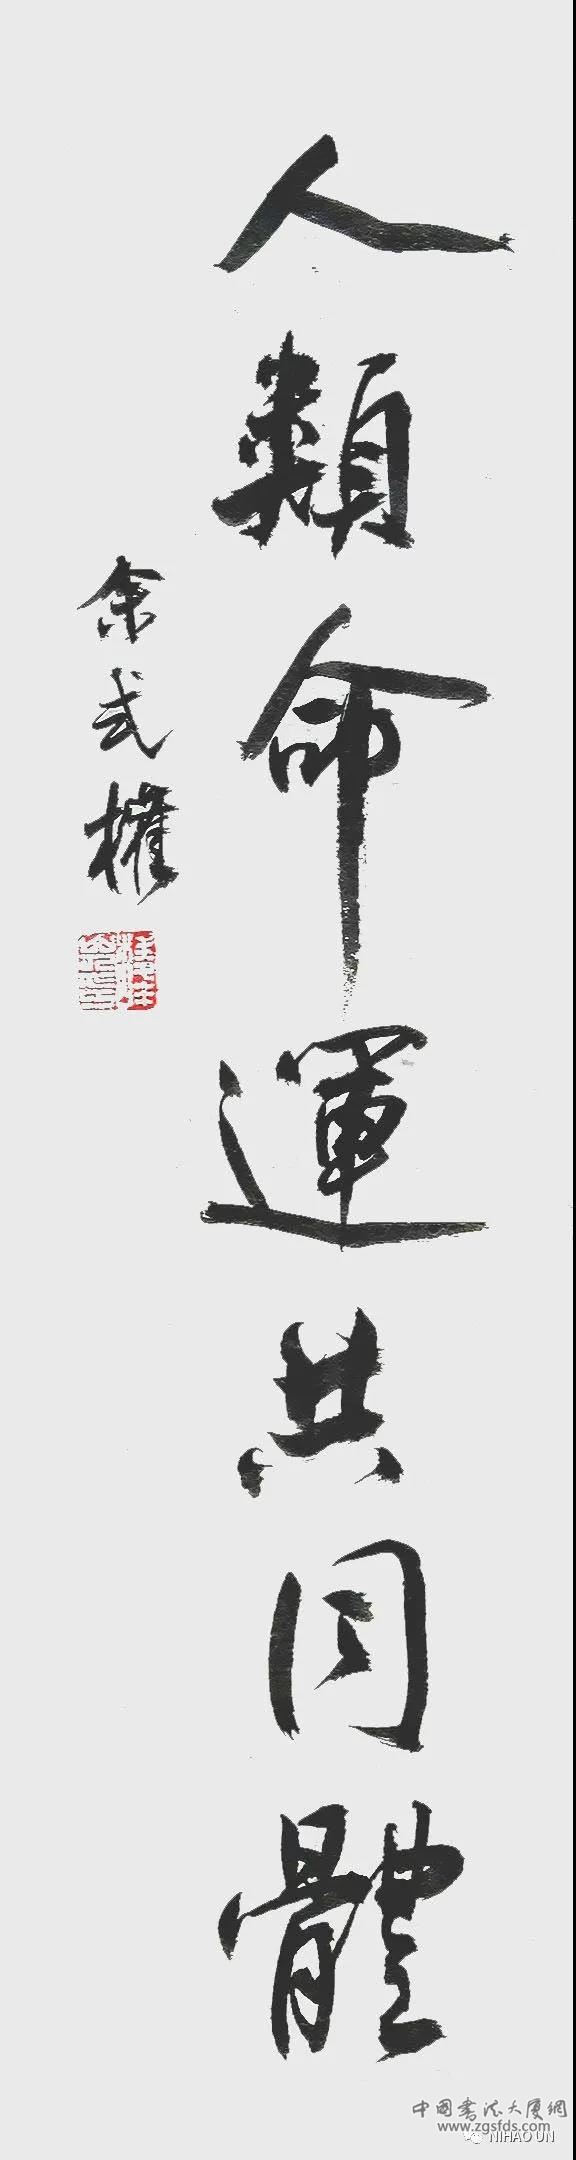 人類命運共同體
余式權
中國書法大廈網
www.zgsfds.com
NIHAO UN